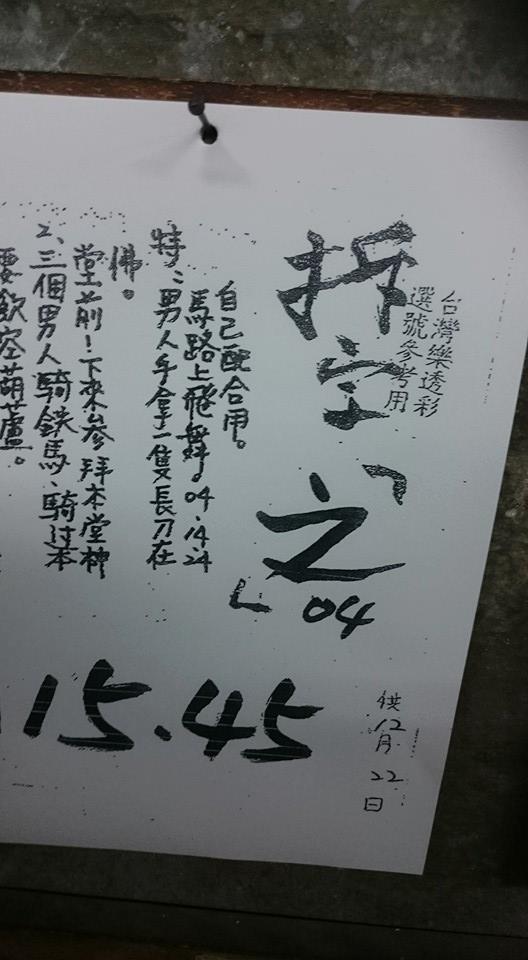 台灣樂透彩
選號參考用
拆字「之」
04
供12月22日
自己配合用。
馬路上飛舞。04.14.24
特:男人手拿一隻長刀在
佛。
堂前!下來參拜本堂神
2、三個男人騎鉄馬、騎过本
要飲空葫蘆。
15.45